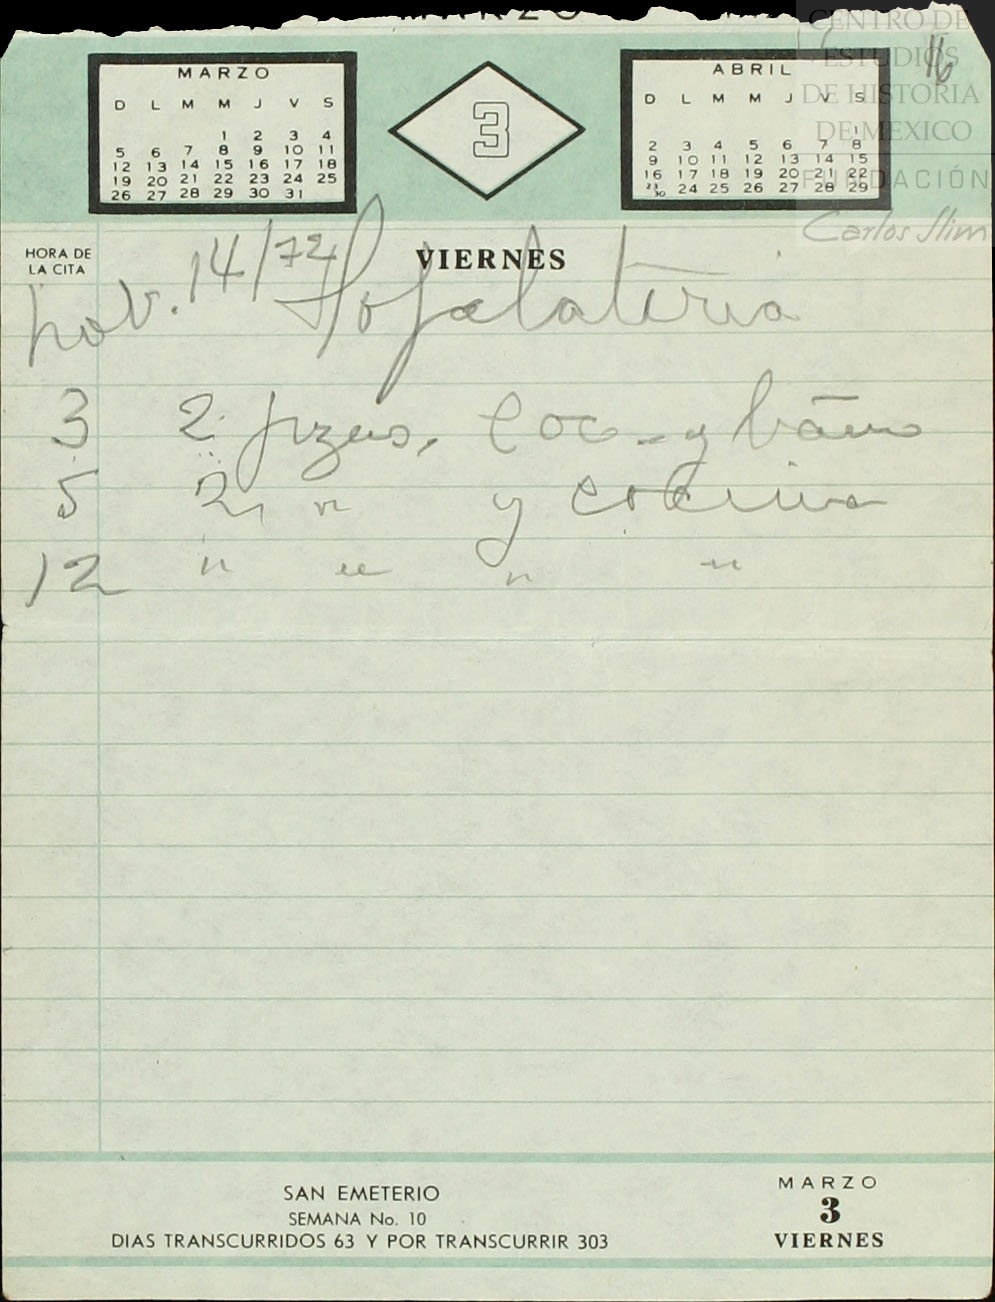 MARZO
16
CENTRO DE
ESTUDIOS
DE HISTORIA
DE MEXICO
FUNDACIÓN
Carlos Slim
MARZO
D L M M J V S
1 2 3 4
5 6 7 8 9 10 11
12 13 14 15 16 17 18
19 20 21 22 23 24 25
26 27 28 29 30 31
3
ABRIL
D L M M J V S
1
2 3 4 5 6 7 8
9 10 11 12 13 14 15
16 17 18 19 20 21 22
23/30 24 25 26 27 28 29
HORA DE
LA CITA
VIERNES
nov. 14/72 Hojalateria
3 2 pizas, coc. y baño
5 2 " y cocina
12 " " " "
SAN EMETERIO
SEMANA No. 10
DIAS TRANSCURRIDOS 63 Y POR TRANSCURRIR 303
MARZO
3
VIERNES